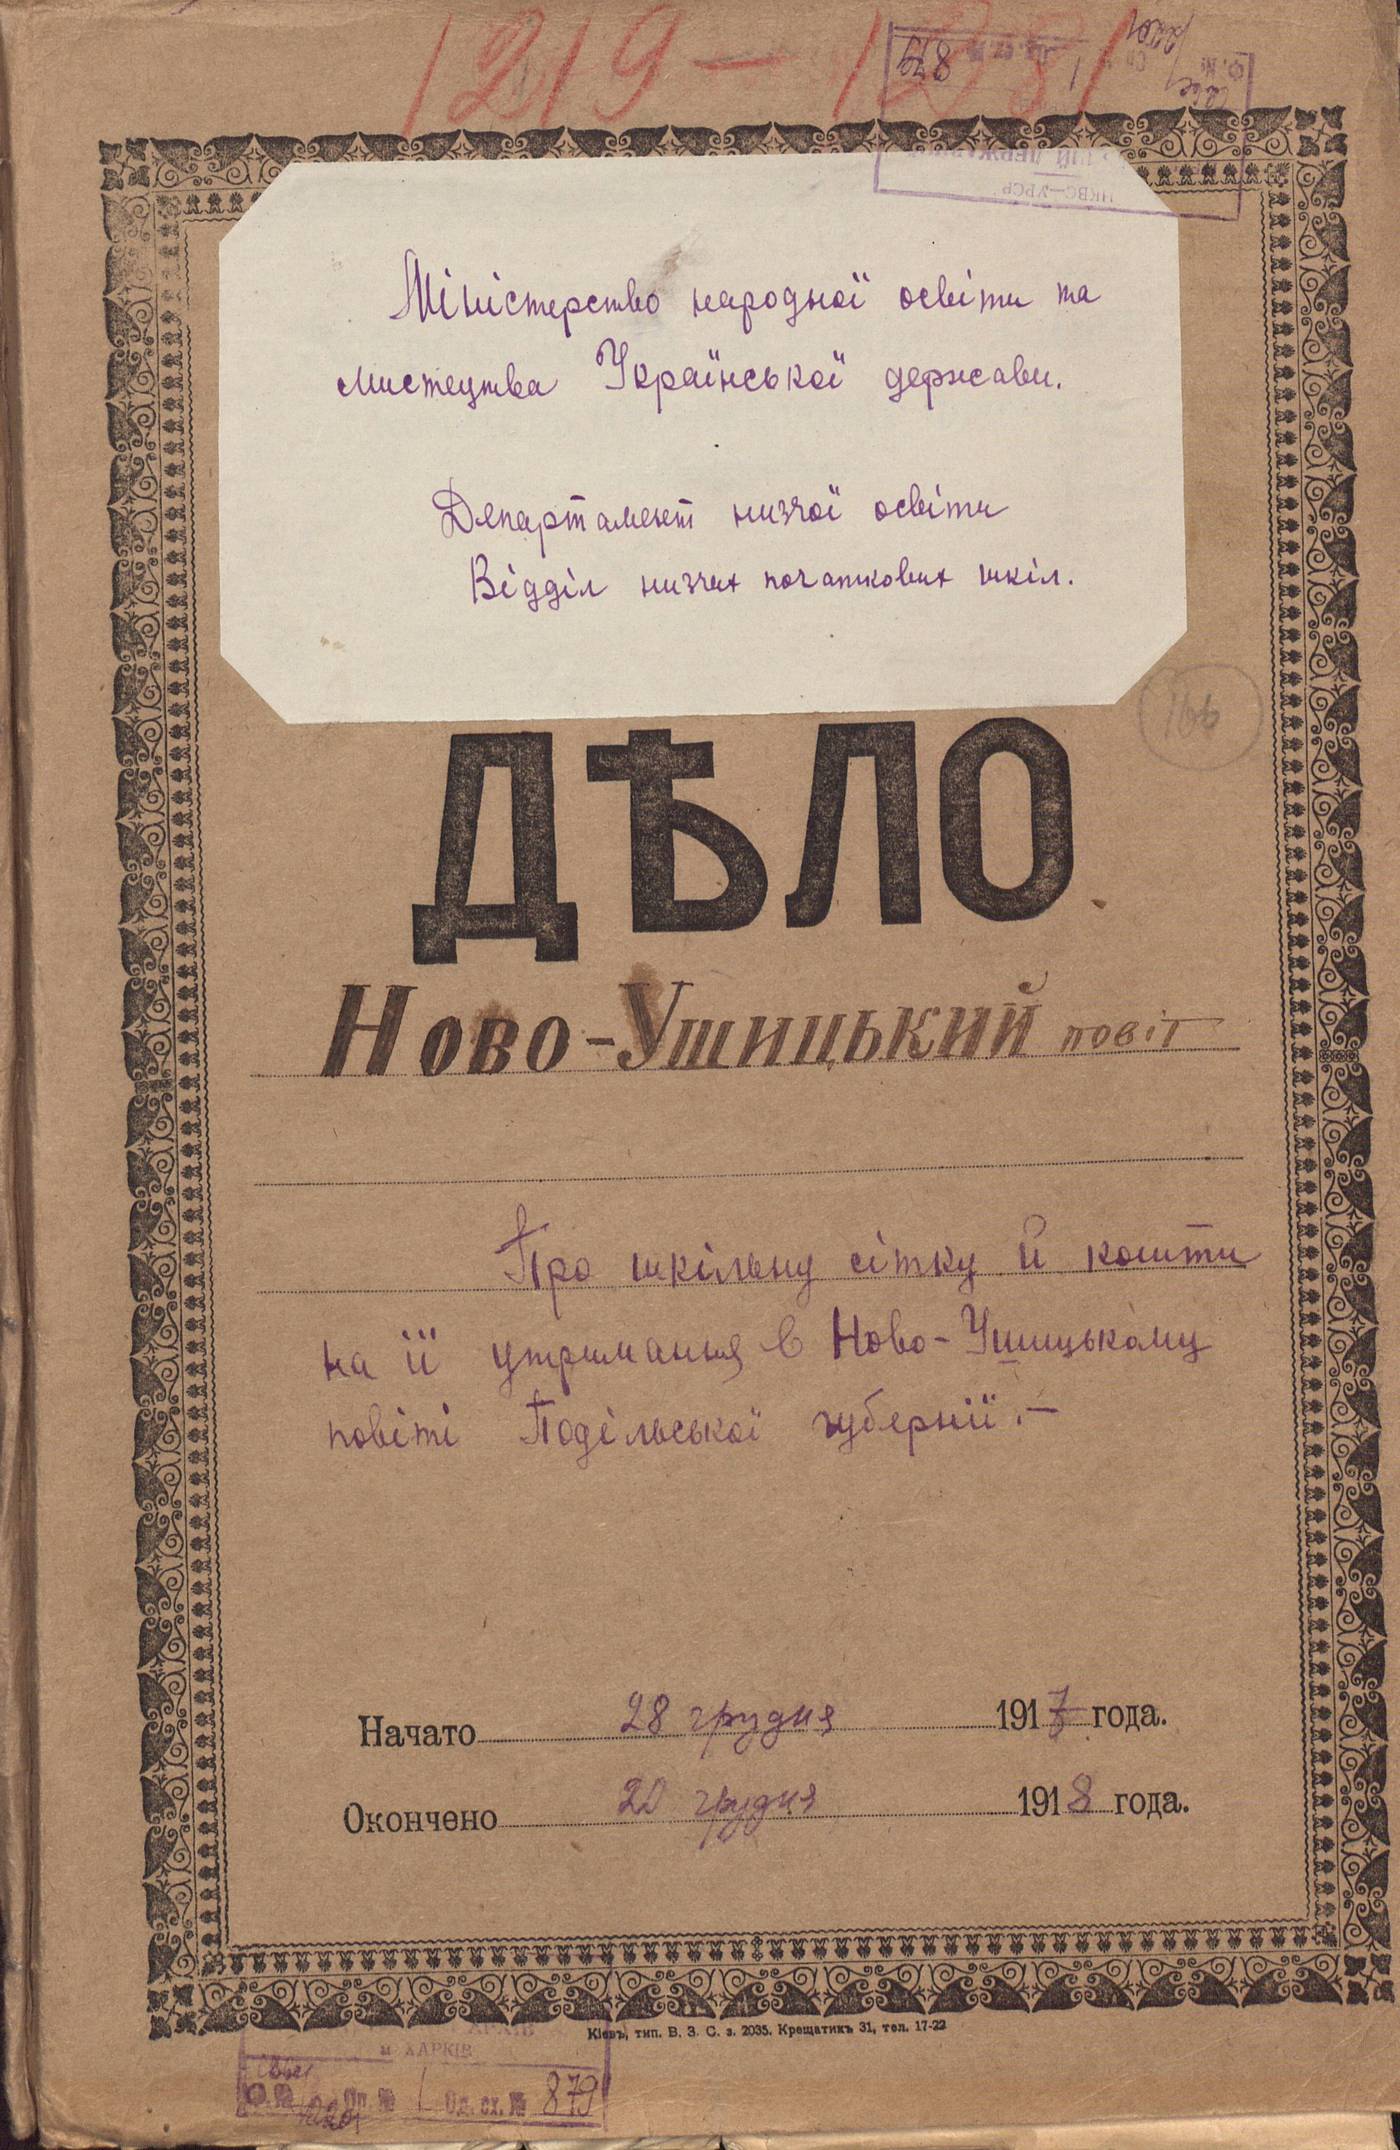 1219 – 1281
879
НКВС–УРСР
Міністерство народної освіти та
мистецтва Української держави.
Департамент низчої освіти
Відділ низчих початкових шкіл.
166
ДѢЛО
Ново-Ушицький повіт
Про шкільну сітку й кошти
на її утримання в Ново-Ушицькому
повіті Подільської губернії.—
Начато 28 грудня 1917 года.
Окончено 20 грудня 1918 года.
Кіевъ, тип. В. З. С. з. 2035. Крещатикъ 31, тел. 17-22
АРХІВ
м ХАРКІВ
Ф. № 2201 Оп. № 1 Од. сх. № 879